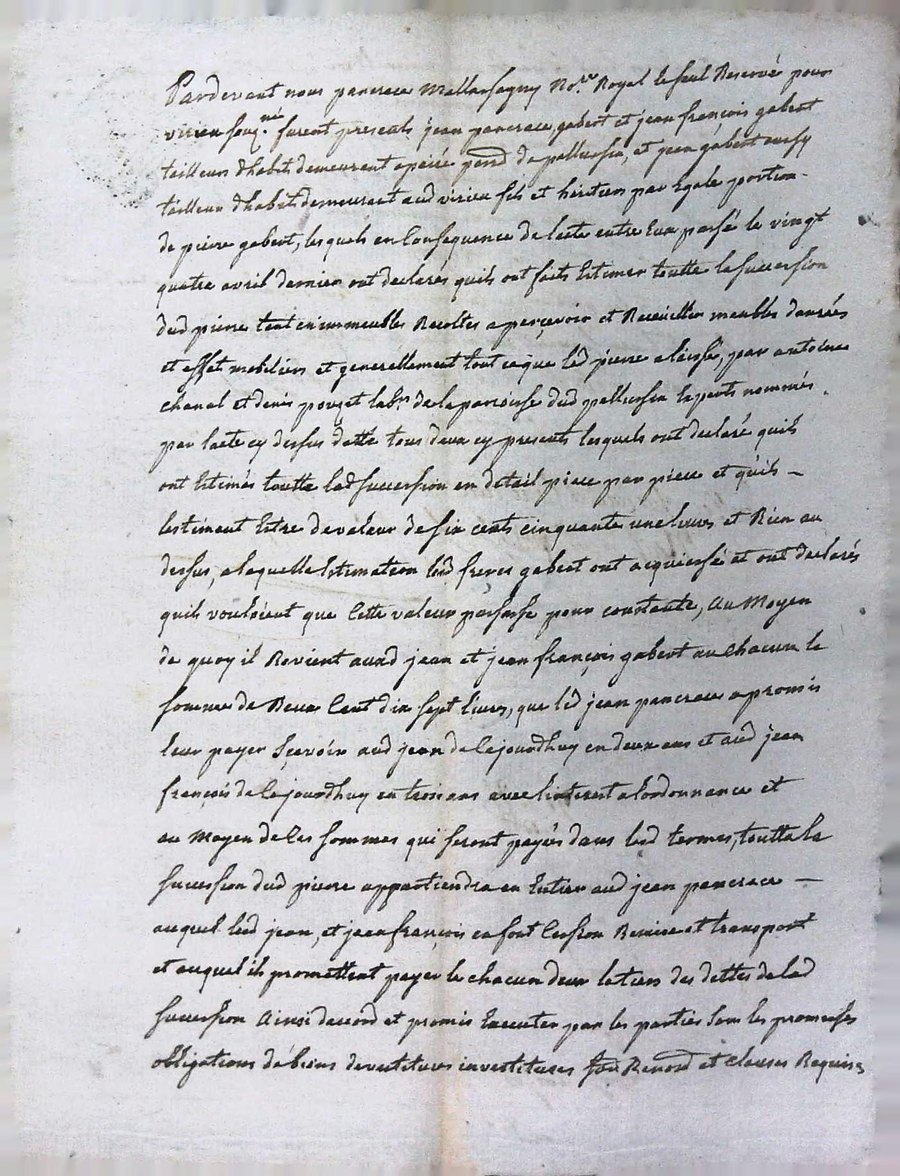 Pardevant nous pancrace Mallassagny No.re Royal le seul Reservé pour
virieu sousg.né furent presents jean pancrace gabert et jean françois gabert
tailleurs dhabit demeurant a pairé du pallussin, et jean gabert aussy
tailleur dhabits demeurant aud virieu fils et hèritiers par Egale portion
de pierre gabert, lesquels en Consequence de lacte entre Eux passé le vingt
quatre avril dernier ont declarés quils ont faits Estimer toutte la succession
dud pierre tant en immeubles Recoltes a perçevoir et Recüeillies meubles danrées
et effet mobiliers et generallement tout ce que led pierre a laissé, par antoine
chanal et denis pouzet lab.rs de la paroisse dud pallussin Experts nommés
par lacte cy dessus datté tous deux cy presents lesquels ont declaré quils
ont Estimés toutte lad succession en detail piece par piece et quils –
lestiment Estre de valeur de six cents cinquante une livres et Rien au
dessus, a laquelle Estimation lesd freres gabert ont acquiessé et ont declarés
quils vouloient que Cette valeur passasse pour constante, Au Moyen
de quoy il Revient auxd jean et jean françois gabert au Chacun la
somme de Deux Cent dix sept livres, que led jean pancrace a promis
leur payer Sçavoir aud jean de Cejourdhuy en deux ans et aud jean
françois de Cejourdhuy en trois ans avec linterest a lordonnance et
au Moyen de Ces sommes qui seront payés dans lesd termes, toutte la
succession dud pierre appartiendra en Entier aud jean pancrace –
auquel led jean, et jean françois en font Cession Remise et transport
et auquel ils promettent payer le chacun deux le tiers des dettes de lad
succession Ainsi daccord et promis Executer par les parties sous les promesses
obligations de biens devestitures investitures Renond et Clauses Requises